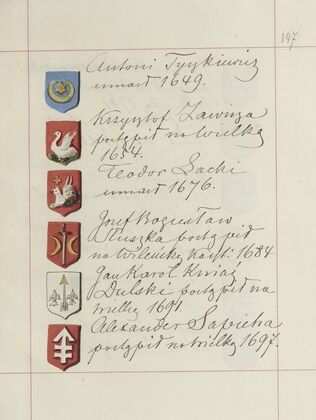 197
Antoni Tyszkiewicz
umarł 1649.
Krzysztof Zawisza
postąpił na Wielką
1654.
Teodor Lacki
umarł 1676.
Józef Bogusław
Słuszka postąpił
na Wileńską Kaszt: 1684
Jan Karol Kniaź
Dolski postąpił na
wielką 1691.
Alexander Sapieha
postąpił na wielką 1697.